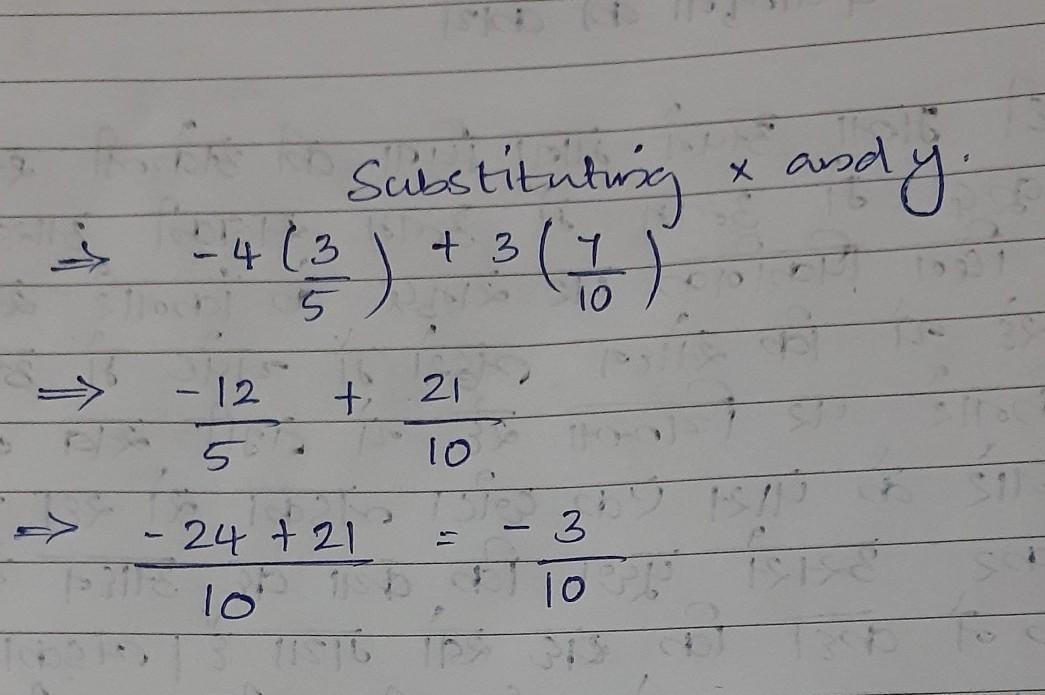 Substituting x and y.
⇒ -4 (3/5) + 3 (7/10)
⇒ -12/5 + 21/10
⇒ (-24 + 21)/10 = -3/10